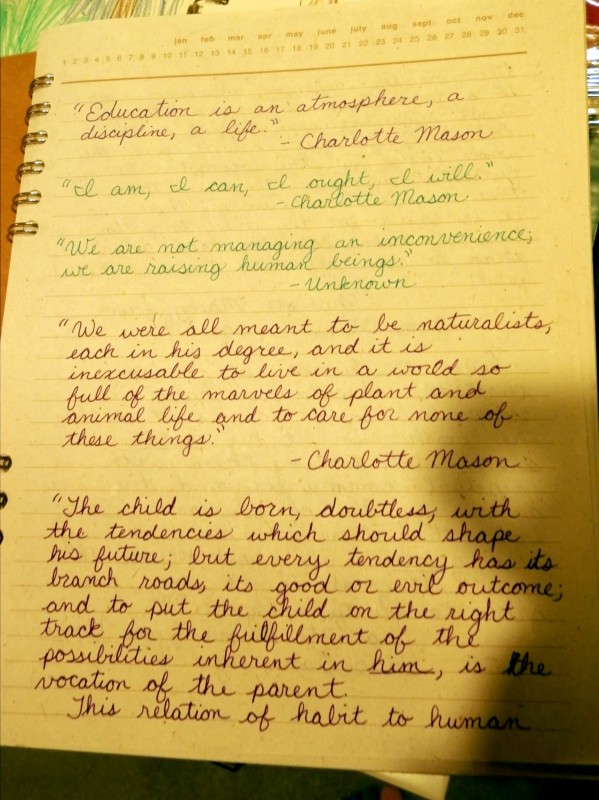 jan feb mar apr may june july aug sept oct nov dec
1 2 3 4 5 6 7 8 9 10 11 12 13 14 15 16 17 18 19 20 21 22 23 24 25 26 27 28 29 30 31
"Education is an atmosphere, a
discipline, a life."
- Charlotte Mason
"I am, I can, I ought, I will."
- Charlotte Mason
"We are not managing an inconvenience;
we are raising human beings."
- Unknown
"We were all meant to be naturalists,
each in his degree, and it is
inexcusable to live in a world so
full of the marvels of plant and
animal life and to care for none of
these things."
- Charlotte Mason
"The child is born, doubtless, with
the tendencies which should shape
his future; but every tendency has its
branch roads, its good or evil outcome;
and to put the child on the right
track for the fulfillment of the
possibilities inherent in him, is the
vocation of the parent.
This relation of habit to human